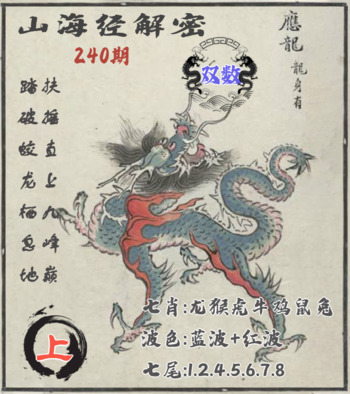 山海经解密
240期
應龍
龍身有
双数
扶摇直上九峰巅
踏破蛟龙栖息地
七肖:龙猴虎牛鸡鼠兔
波色:蓝波+红波
七尾:1.2.4.5.6.7.8
上